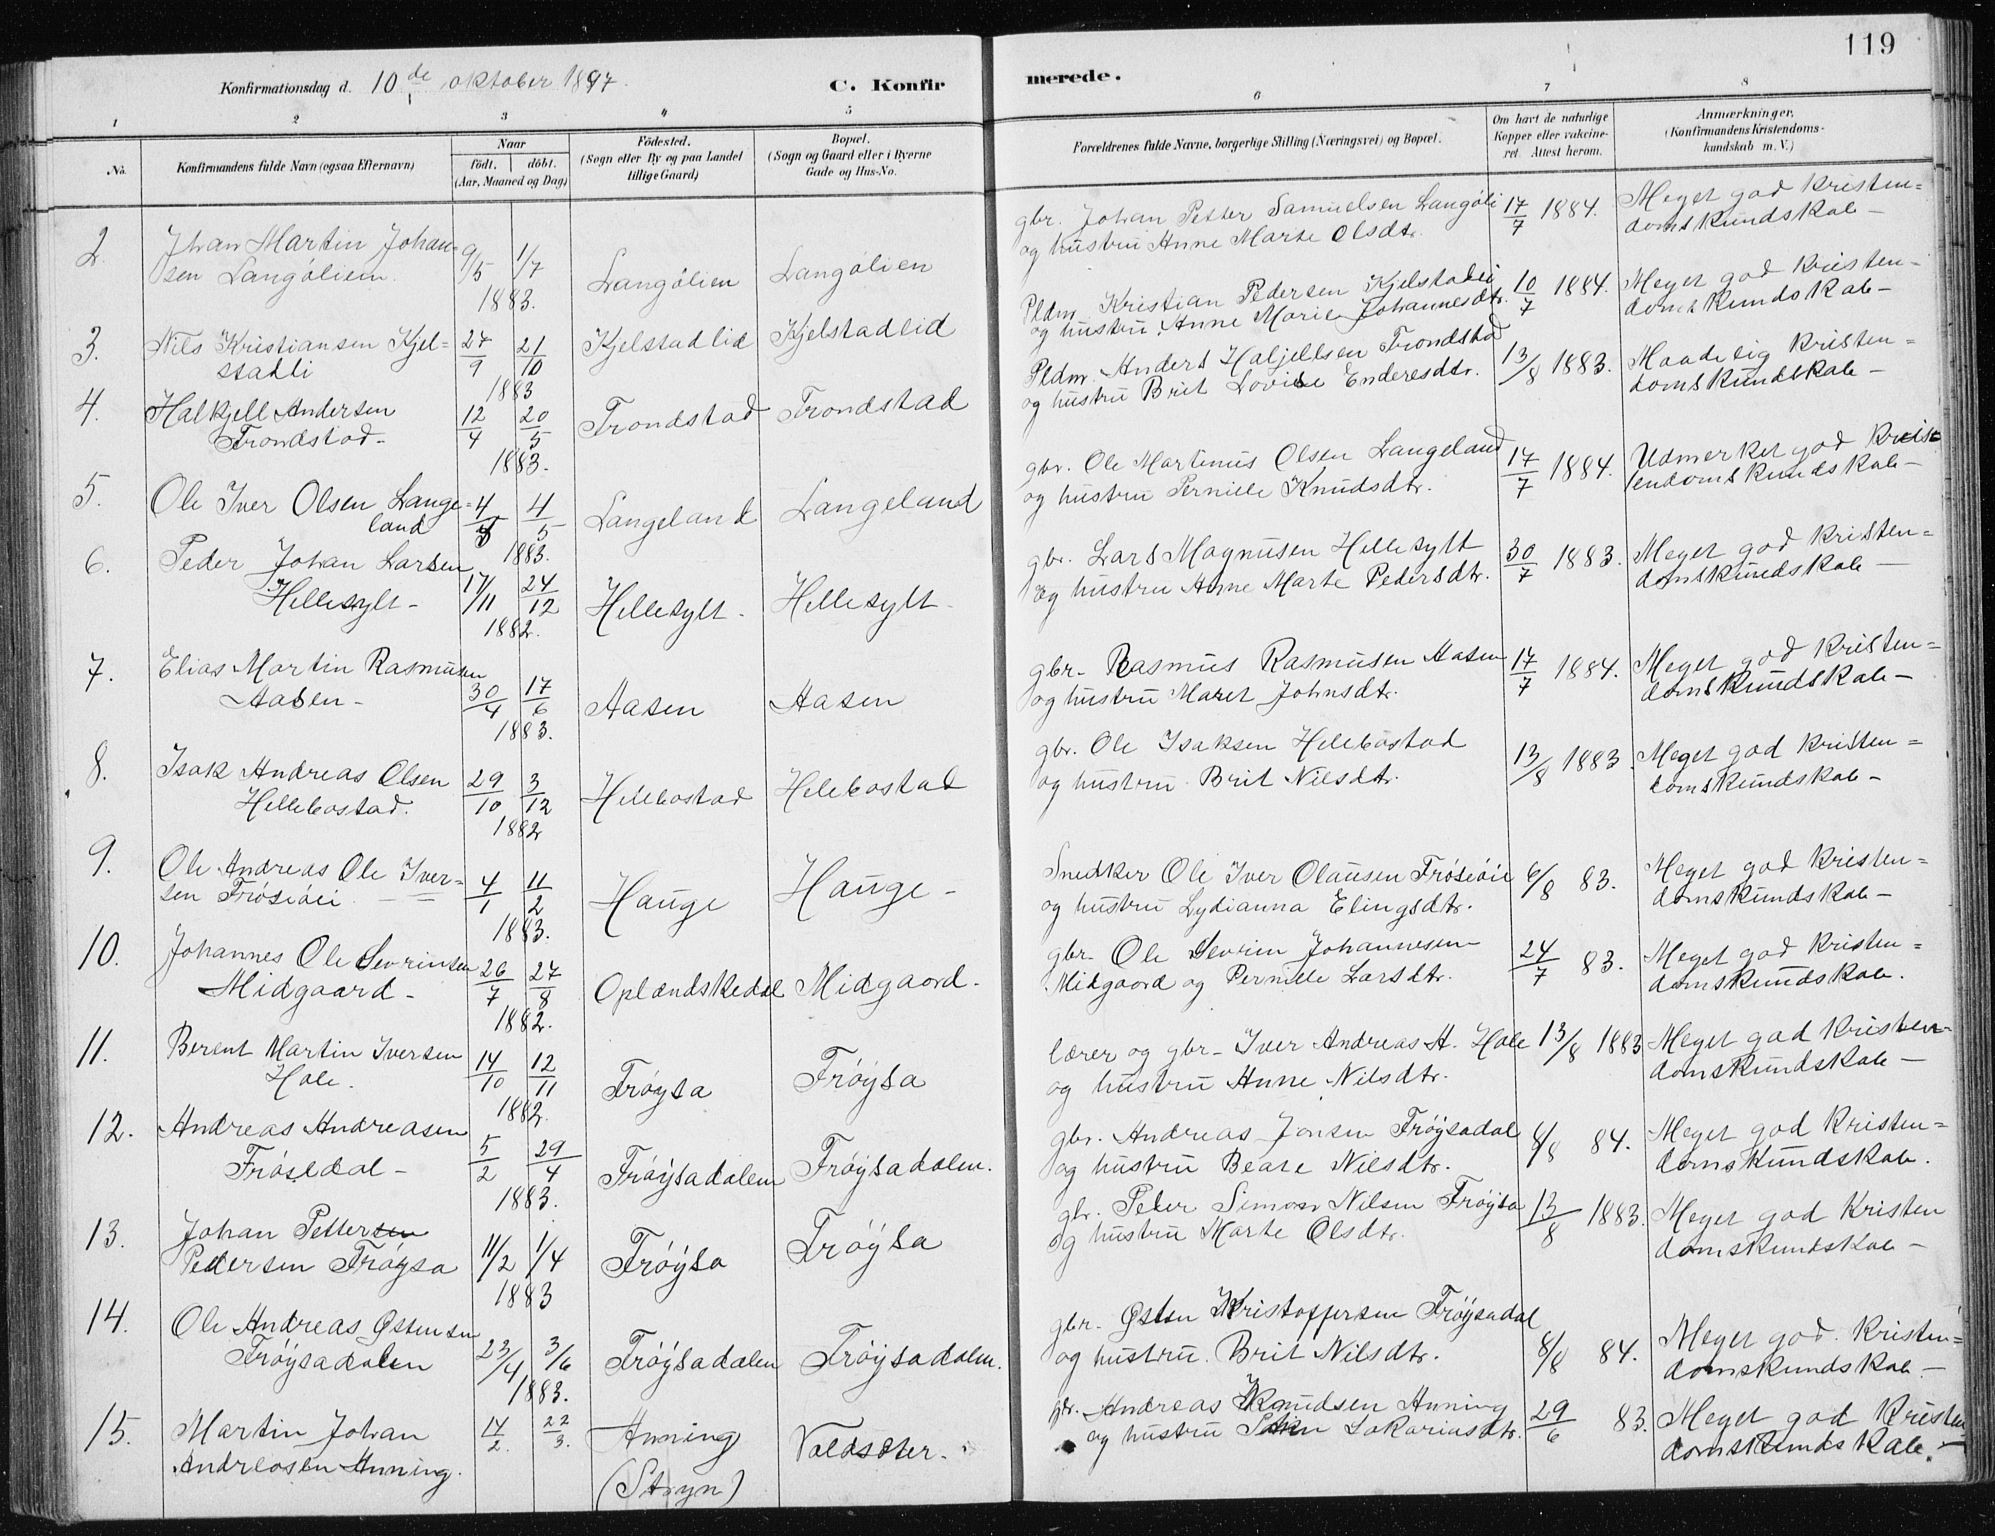 119
Konfirmationsdag d. 10de oktober 1897.
C. Konfirmerede.
1 2 3 4 5 6 7 8
No.
Konfirmandens fulde Navn (ogsaa Efternavn)
Naar
födt. döbt.
(Aar, Maaned og Dag)
Födested.
(Sogn eller By og paa Landet
tillige Gaard)
Bopæl.
(Sogn og Gaard eller i Byerne
Gade og Hus-No.
Forældrenes fulde Navne, borgerlige Stilling (Næringsvei) og Bopæl.
Om havt de naturlige
Kopper eller vakcine-
ret. Attest herom.
Anmærkninger.
(Konfirmandens Kristendoms-
kundskab m. V.)
2 Johan Martin Johan=
sen Langölien.
9/5 1/7
1883.
Langölien Langölien
gbr. Johan Petter Samuelsen Langöli
og hustru Anne Marte Olsdtr.
17/7 1884.
Meget god Kristen=
domskundskab—
3. Nils Kristiansen Kjel=
stadli
27/9 21/10
1883
Kjelstadlid Kjelstadlid
Pldm. Kristian Pedersen Kjelstadli
og hustru Anne Marie Johannesdtr.
10/7 1884.
Meget god Kristen=
domskundskab—
4. Halkjell Andersen
Trondstad-
12/4 20/5
1883.
Trondstad Trondstad
Pldm. Anders Haljellsen Trondstad
og hustru Brit Lovise Enderesdtr.
13/8 1883.
Maadelig Kristen=
domskundskab—
5. Ole Iver Olsen Lange=
land
4/3 4/5
1883.
Langeland Langeland
gbr. Ole Martinus Olsen Langeland
og hustru Pernille Knudsdtr.
17/7 1884.
Udmerket god Krist=
endomskundskab—
6. Peder Johan Larsen
Hellesylt-
17/11 24/12
1882.
Hellesylt. Hellesylt
gbr. Lars Magnusen Hellesylt
og hustru Anne Marte Pedersdtr.
30/7 1883.
Meget god Kristen=
domskundskab—
7. Elias Martin Rasmusen
Aasen-
30/4 17/6
1883.
Aasen Aasen
gbr- Rasmus Rasmusen Aasen
og hustru Maret Johnsdtr.
17/7 1884.
Meget god Kristen=
domskundskab—
8. Isak Andreas Olsen
Hellebostad.
29/10 3/12
1882
Hellebostad Helebostad
gbr. Ole Isaksen Helebostad
og hustru Brit Nilsdtr.
13/8 1883.
Meget god Kristen=
domskundskab—
9. Ole Andreas Ole Iver=
sen
4/1 11/2
1883.
Hauge Hauge-
Snedker Ole Iver Olausen
og hustru Lydianna Elingsdtr.
6/8 83.
Meget god Kristen=
domskundskab—
10. Johannes Ole Sevrinsen
Midgaard-
26/7 27/8
1882.
Oplændskedal Midgaard-
gbr- Ole Sevrin Johannesen
Midgaard og Pernille Larsdtr.
24/7 83.
Meget god Kristen=
domskundskab.
11. Berent Martin Iversen
Hole.
14/10 12/11
1882.
Fröysa Fröysa
lærer og gbr- Iver Andreas A. Hole
og hustru Anne Nilsdtr.
13/8 1883
Meget god Kristen-
domskundskab—
12. Andreas Andreasen
Frösedal-
5/2 29/4
1883.
Fröysadalen Fröysadalen.
gbr. Andreas Jonsen Fröysadal
og hustru Beate Nilsdtr.
8/8 84.
Meget god Kristen=
domskundskab.
13. Johan Pettersen
Pedersen Fröysa
11/2 1/4
1883
Fröysa Fröysa
gbr. Peter Simon Nilsen Fröysa
og hustru Marte Olsdtr.
13/8 1883.
Meget god Kristen
domskundskab—
14. Ole Andreas Östensen
Fröysadalen
23/4 3/6
1883.
Fröysadalen Fröysadalen.
gbr- Østen Kristoffersen Fröysadal
og hustru Brit Nilsdtr.
8/8 84.
Meget god. Kristen=
domskundskab.—
15. Martin Johan
Andreasen Anning.
14/2. 22/3.
Anning
(Stryn)
Voldsæter.
gbr. Andreas Knudsen Anning
og hustru Sakariasdtr.
29/6 83.
Meget god Kristen
domskundskab.—